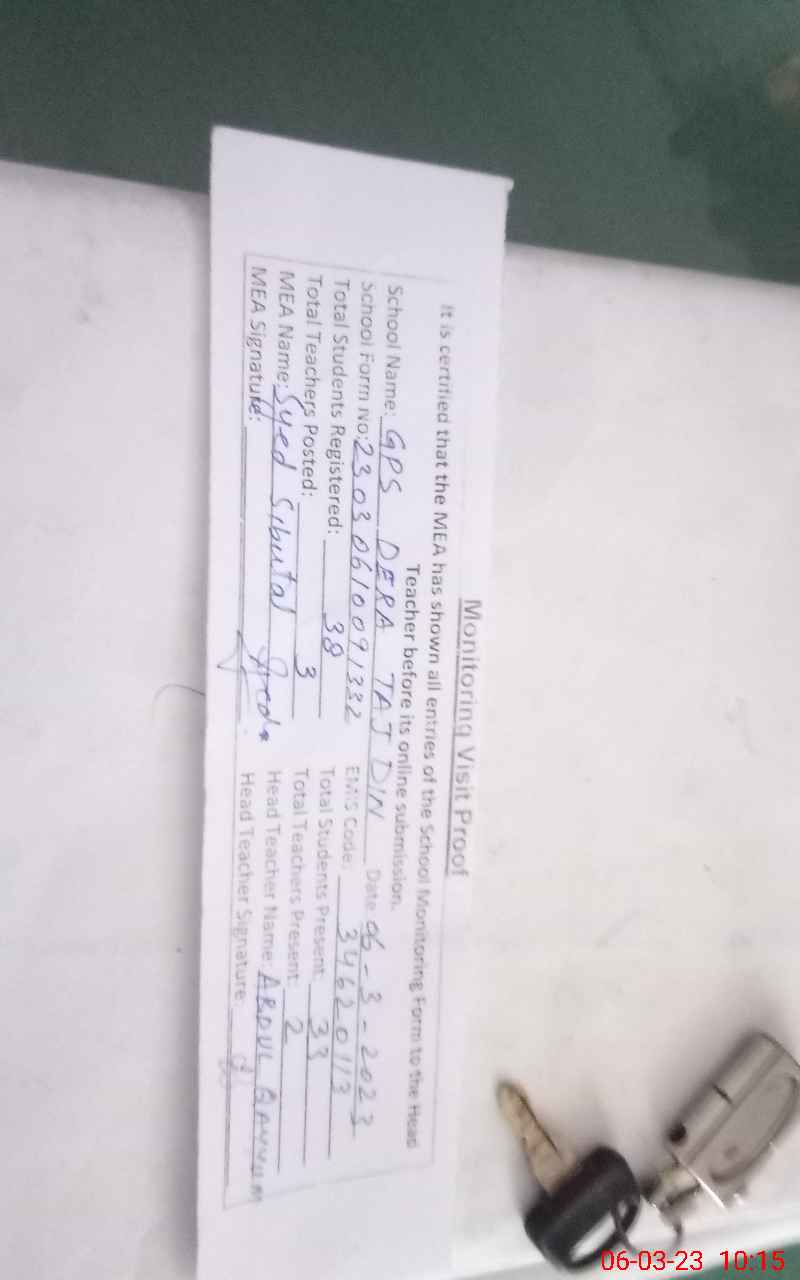 Monitoring Visit Proof
It is certified that the MEA has shown all entries of the School Monitoring Form to the Head
Teacher before its online submission.
School Name: GPS DERA TAJ DIN Date 06-3-2023
School Form No: 23030610091332 EMIS Code: 34620113
Total Students Registered: 38 Total Students Present: 33
Total Teachers Posted: 3 Total Teachers Present: 2
MEA Name: Syed Sibutal Head Teacher Name: ABDUL QAYYUM
MEA Signature: Head Teacher Signature:
06-03-23 10:15